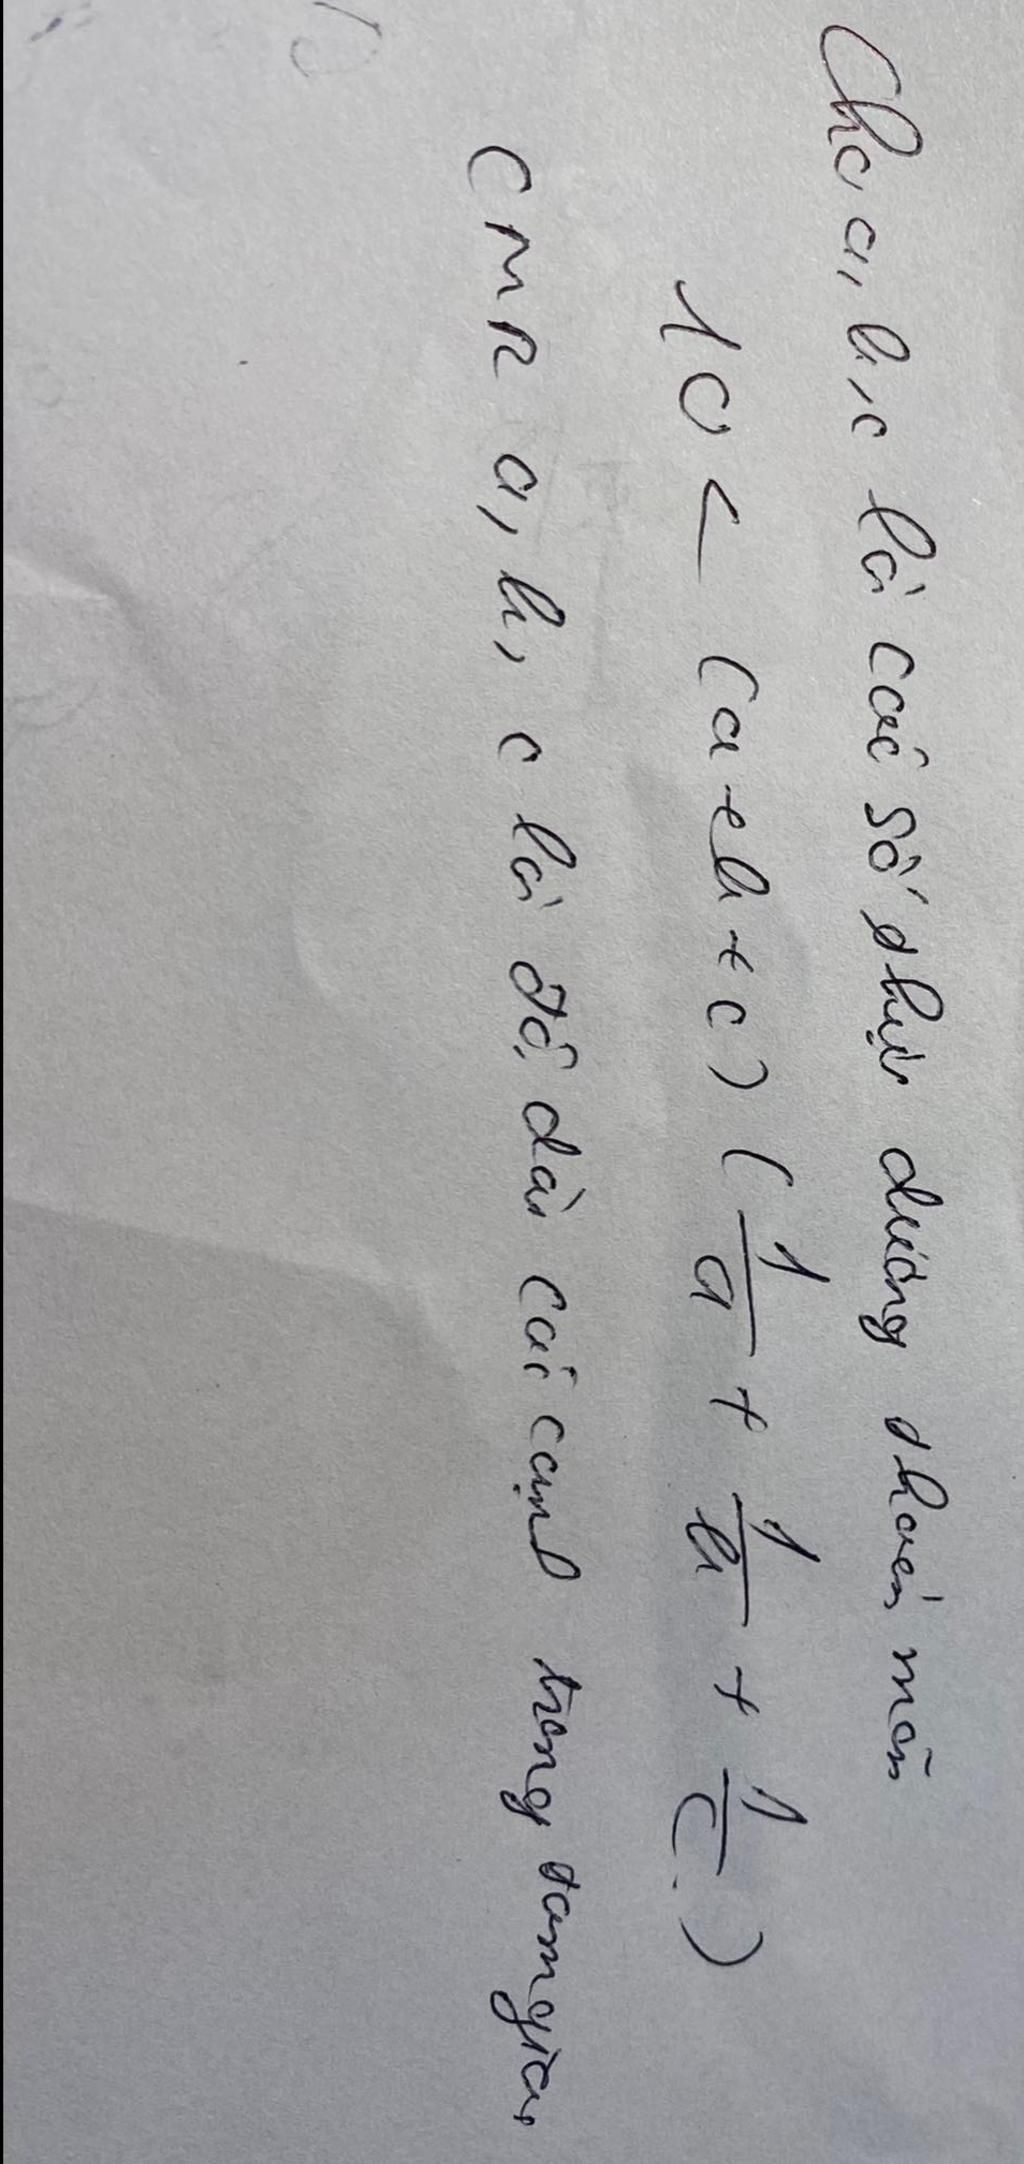 Cho a, b, c là các số thực dương thoả mãn
10 < (a+b+c) ( 1/a + 1/b + 1/c )
CMR a, b, c là độ dài các cạnh trong tam giác